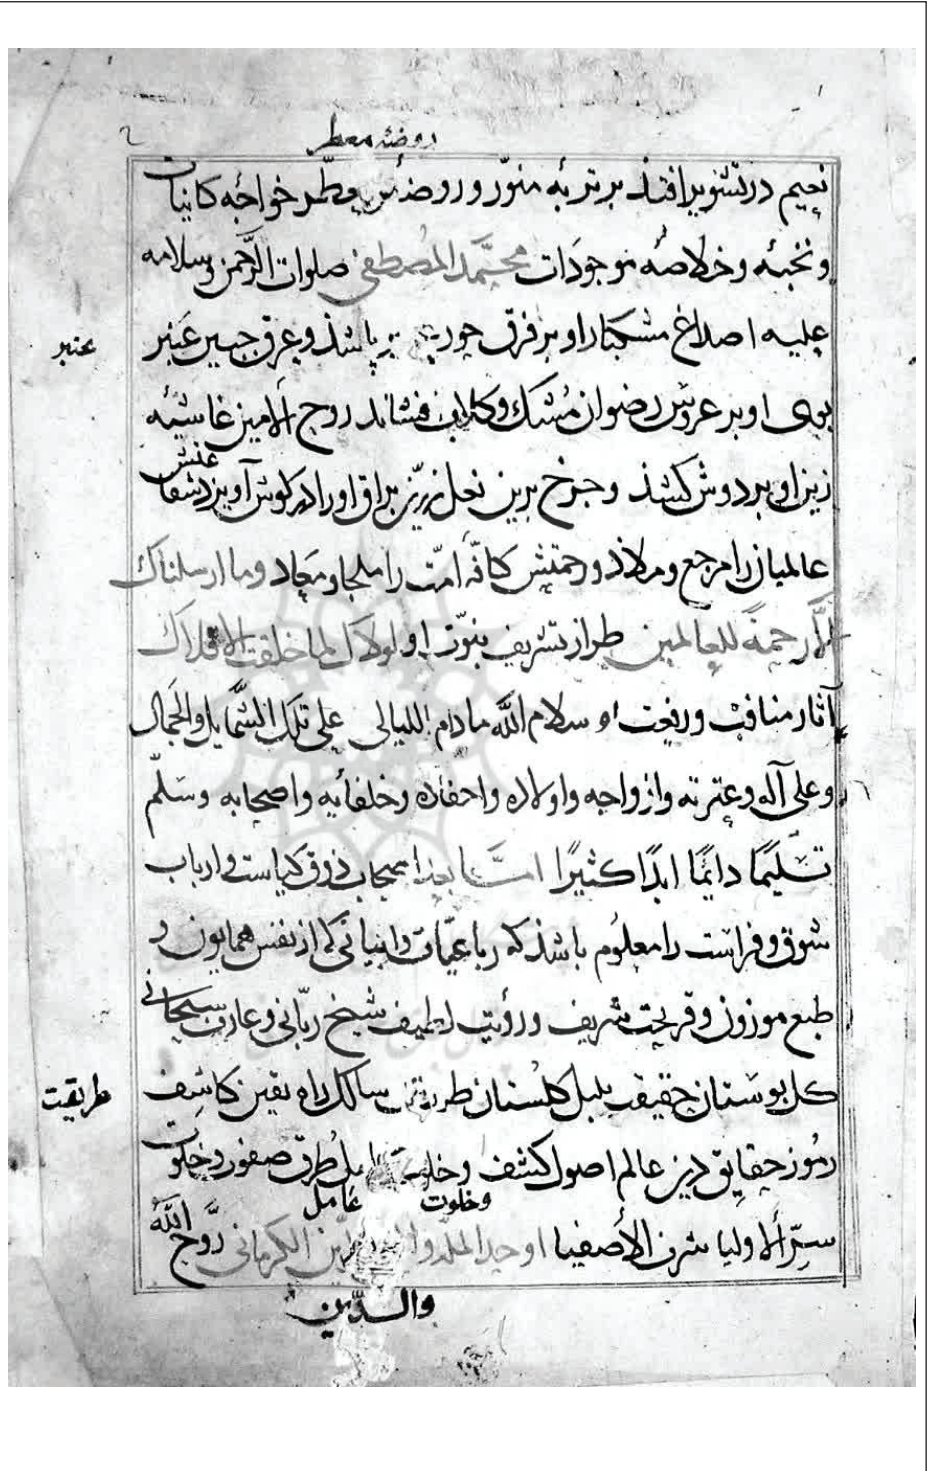 روضۀ معطر
نعیم در تشویر افتد بر تربۀ منوّر و روضۀ معطر خواجۀ کاینات
و نخبه و خلاصۀ موجودات محمد المصطفی صلوات الرحمن و سلامه
علیه اصداغ مشکبار او بر فرق حور پاشذ و عرق جبین عنبر
عنبر
بوی او بر عروس رضوان مشک و کلاب فشاند روح الامین غاشیه
زین او بر دوش کشذ و چرخ برین نعل زرّین براق او را در کوش آویزد شفاعتش
عالمیان را مرجع و ملاذ و رحمتش کافّه امّت را ملجا و معاد و ما ارسلناک
الّا رحمة للعالمین طراز تشریف نبوّت او لولاک لما خلقت الافلاک
آثار مناقب و رفعت او سلام الله مادام اللیالی علی تلک الشمایل والجمال
و علی آله و عترته و ازواجه و اولاده و احفاده و خلفائه و اصحابه و سَلّم
تسلیمًا دایمًا ابدًا کثیرًا امّا بعد اصحاب ذوق کیاست و ارباب
شوق و فراست را معلوم باشذ که رباعیّات و ابیاتی که از نفس همایون و
طبع موزون و قریحت شریف و رؤیت لطیف شیخ ربّانی و عارف سبحانی
کل بوستان حقیقت بلبل کلستان طریقت سالک راه یقین کاشف
طریقت
رموز حقایق دین عالم اصول کشف و خلوت عامل طرق صفور و خلوت
و خلوت عامل
سِرّ الاولیا شرف الأصفیا اوحد الملة و الدین الکرمانی روّح الله
والدّین